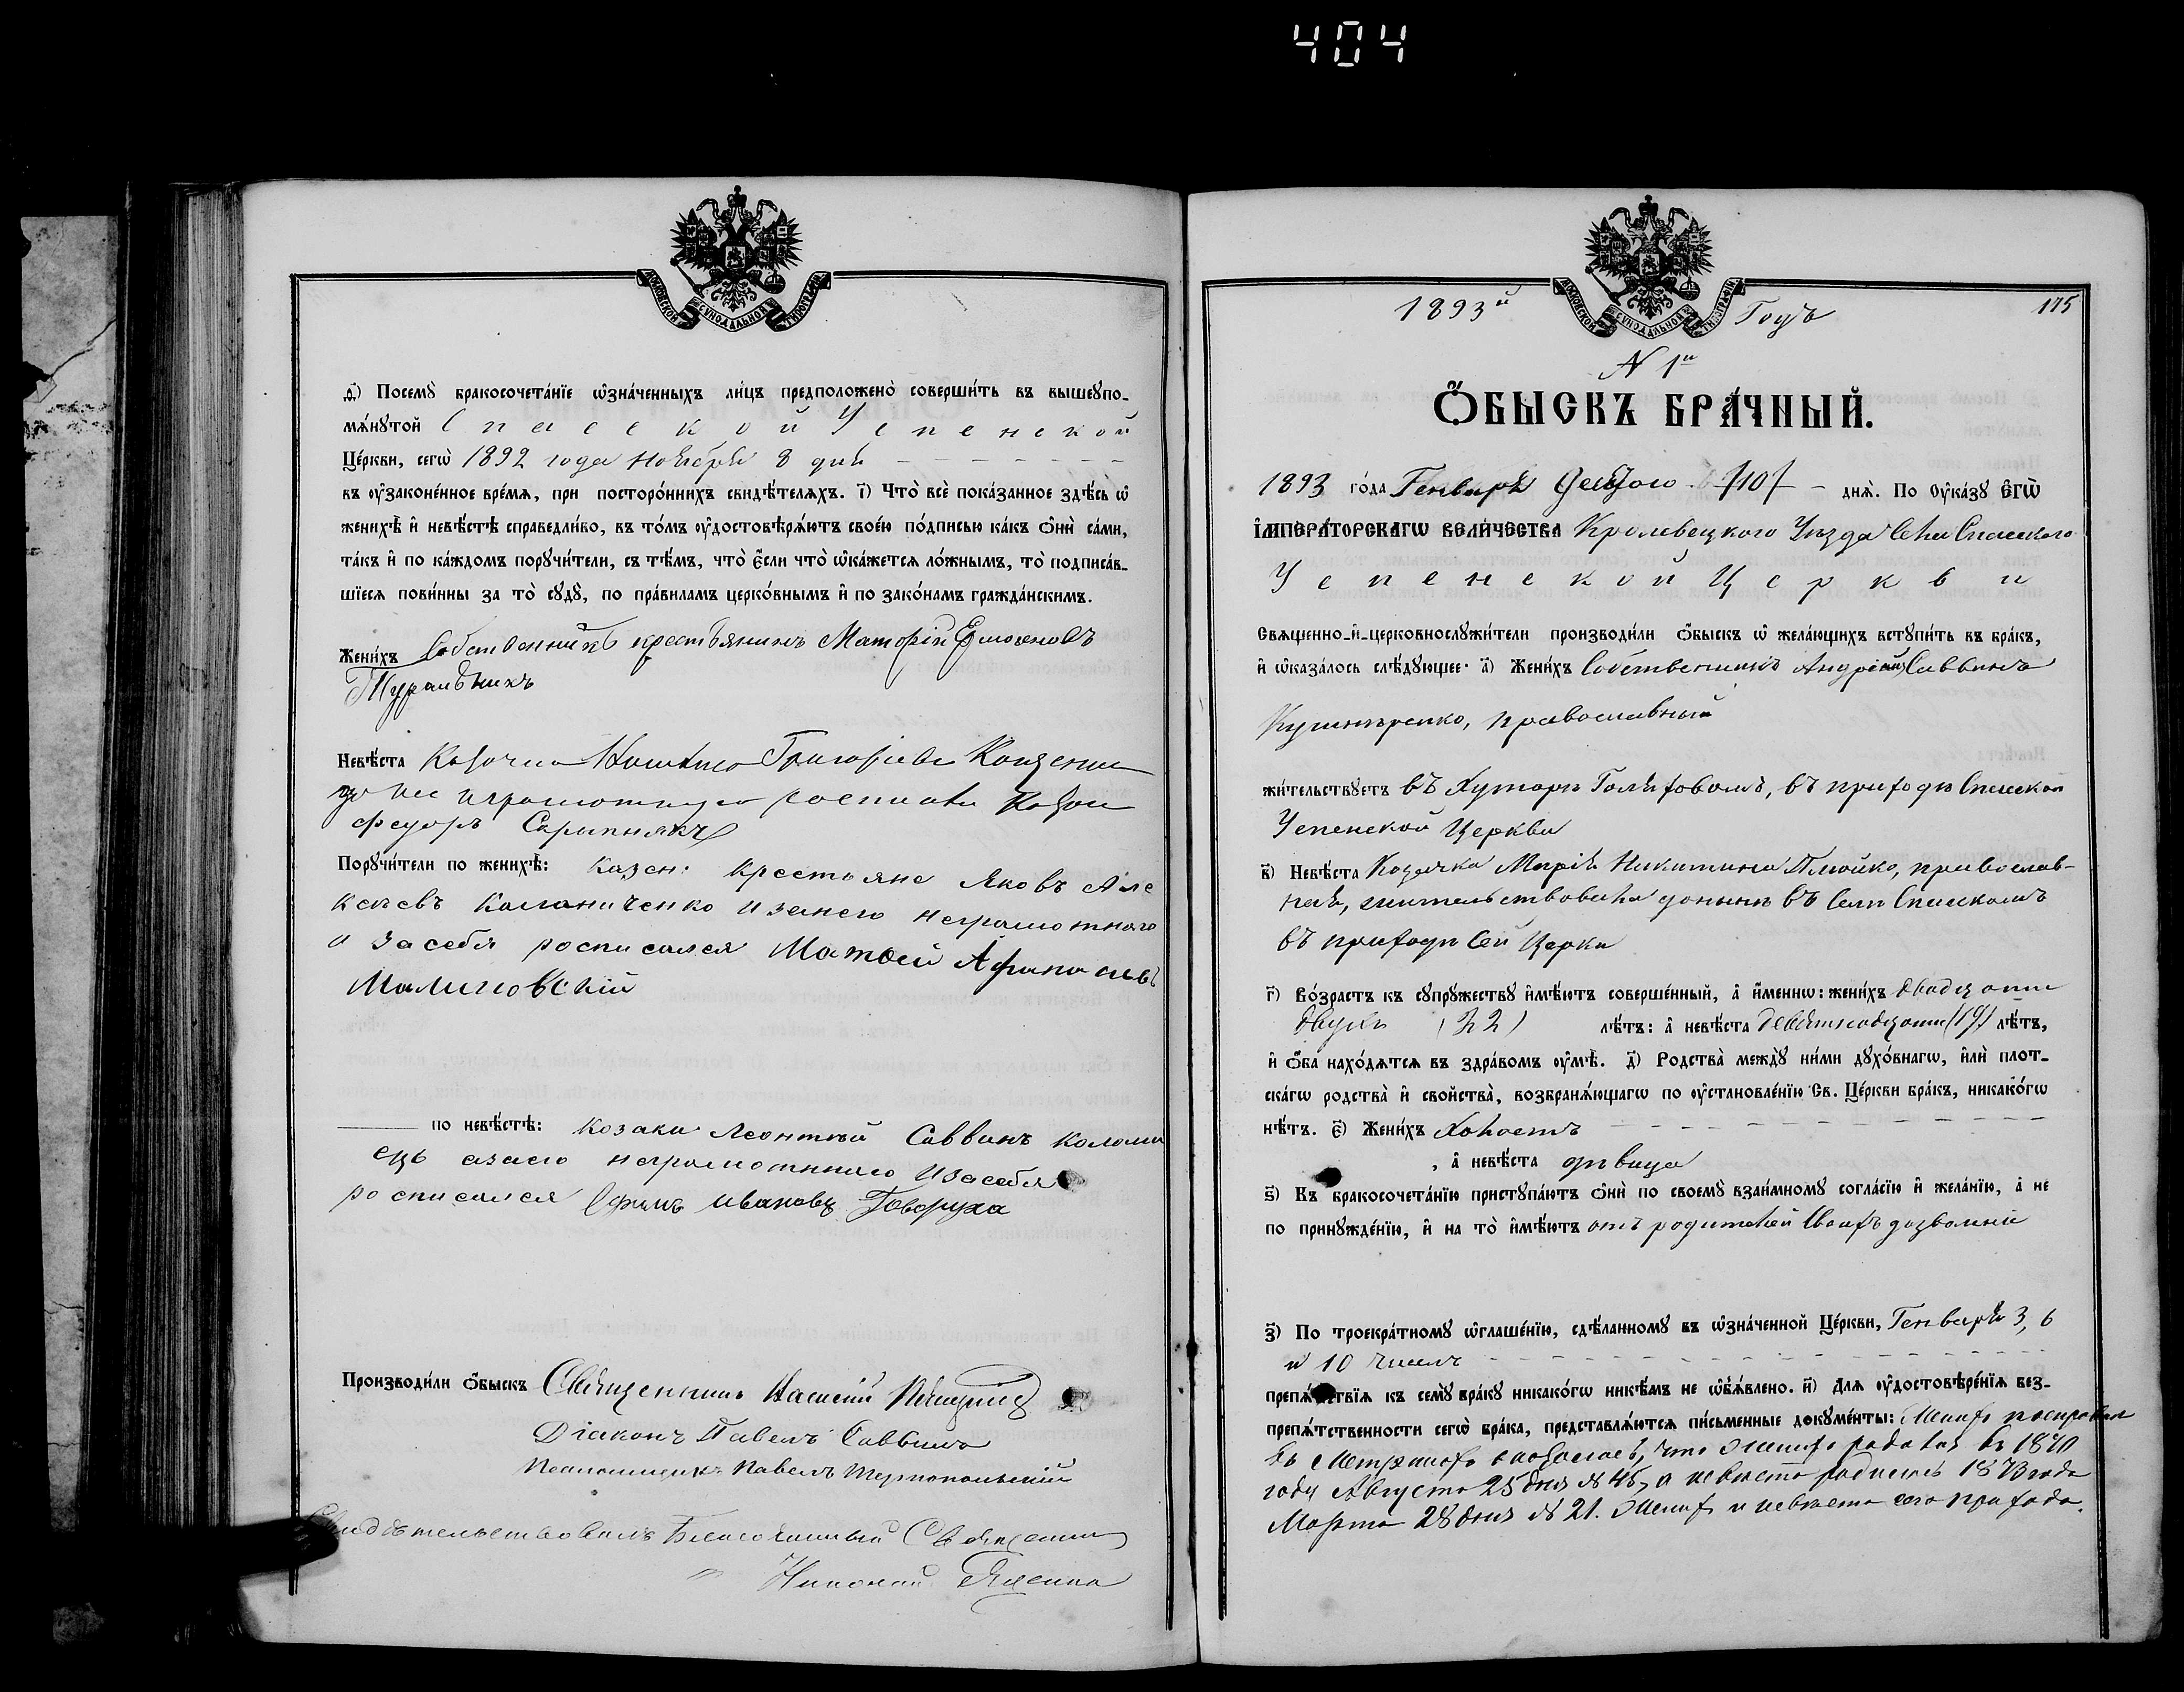 404
МОСКОВСКОЙ СУНОДАЛЬНОЙ ТИПОГРАФІИ
д҃і) Посемꙋ̀ бракосочета́нїе ѡ҆зна́ченныхъ ли́цъ предположено̀ соверши́ть въ вышеꙋпо-
мѧ́нꙋтой Спасской Успенской
Це́ркви, сегѡ̀ 1892 года Ноября 8 дня
въ ᲂу҆законе́нное вре́мѧ, при посторо́ннихъ свидѣ́телѧхъ. і҃) Что̀ всѐ пока́занное здѣ́сь ѡ҆
женихѣ̀ и҆ невѣ́стѣ справедли́во, въ то́мъ ᲂу҆достовѣрѧ́ютъ свое́ю по́дписью ка́къ ѻ҆нѝ са́ми,
та́къ и҆ по ка́ждомъ порꙋчи́тели, съ тѣ́мъ, что̀ є҆́сли что̀ ѡ҆ка́жетсѧ ло́жнымъ, то̀ подписа́в-
шїесѧ пови́нны за то̀ сꙋдꙋ̀, по пра́виламъ церко́внымъ и҆ по зако́намъ гражда́нскимъ.
Жени́хъ Собственникъ крестьянинъ Матфій
Невѣ́ста Григоріева
неграмотную козак
Федоръ Скрипнякъ
Порꙋчи́тели по женихѣ̀: Казен: Крестьяне Яковъ Але
ксѣевъ Калениченко и занего неграмотнаго
и засебя росписался Матвей Афанасьевъ
Малиновскій
по невѣ́стѣ: Козаки Леонтій Саввинъ Коломи
ецъ азаего неграмотнаго и засебя
росписался Ефимъ Ивановъ Говоруха
Производи́ли ѻ҆́быскъ Священникъ Василій
Діаконъ Павелъ Саввинъ
Псаломщикъ Павелъ Тернопольскій
Свидѣтельствовалъ Благочинный Священникъ
Николай
1893й Годъ 175
МОСКОВСКОЙ СУНОДАЛЬНОЙ ТИПОГРАФІИ
N 1й
Ѻ҆́БЫСКЪ БРА́ЧНЫЙ.
1893 го́да Генваря Десятого /10/ днѧ̀. По Оу҆ка́зꙋ Є҆ГѠ̀
І҆МПЕРА́ТОРСКАГѠ ВЕЛИ́ЧЕСТВА Кролевецкого Уѣзда Села Спасского
Успенской Церкви
Свѧщенно-и҆-церковнослꙋжи́тели производи́ли ѻ҆́быскъ ѡ҆ жела́ющихъ встꙋпи́ть въ бра́къ,
и҆ ѡ҆каза́лось слѣ́дꙋющее: а҃) Жени́хъ Собственникъ Андрій Саввинъ
православный
жи́тельствꙋетъ въ Хуторѣ Голяховомъ, въ приходѣ Спасской
Успенской Церкви
в҃) Невѣ́ста Козачка Марія Никитина Плюйко, православ-
ная, жительствовала донынѣ въ Селѣ Спасскомъ
въ приходѣ сей Церкви
г҃) Во́зрастъ къ сꙋпрꙋ́жествꙋ и҆мѣ́ютъ соверше́нный, а҆ и҆́меннѡ: жени́хъ двадцати
двухъ (22) лѣ́тъ: а҆ невѣ́ста девятнадцати (19) лѣ́тъ,
и҆ ѻ҆́ба нахо́дѧтсѧ въ здра́вомъ ᲂу҆мѣ̀. д҃) Родства̀ междꙋ̀ ни́ми дꙋхо́внагѡ, и҆лѝ плот-
ска́гѡ родства̀ и҆ свойства̀, возбранѧ́ющагѡ по ᲂу҆становле́нїю Св. Це́ркви бра́къ, никако́гѡ
нѣ́тъ. є҃) Жени́хъ Холостъ
, а҆ невѣ́ста дѣвица
ѕ҃) Къ бракосочета́нїю пристꙋпа́ютъ ѻ҆нѝ по своемꙋ̀ взаи́мномꙋ согла́сїю и҆ жела́нїю, а҆ не
по принꙋжде́нїю, и҆ на то̀ и҆мѣ́ютъ отъ родителей своихъ дозволеніе
з҃) По троекра́тномꙋ ѡ҆глаше́нїю, сдѣ́ланномꙋ въ ѡ҆зна́ченной Це́ркви, Генваря 3, 6
и 10 чиселъ
препѧ́тствїѧ къ семꙋ̀ бра́кꙋ никако́гѡ никѣ́мъ не ѡ҆б̾ѧ́влено. и҃) Длѧ ᲂу҆достовѣре́нїѧ без-
препѧ́тственности сегѡ̀ бра́ка, представлѧ́ютсѧ пи́сьменные докꙋме́нты:
въ Метрикахъ оказалось, что женихъ родился въ 1870
году Августа 25 дня № 45, а невѣста родилась 1873 года
Марта 28 дня № 21. Женихъ и невѣста сего прихода.